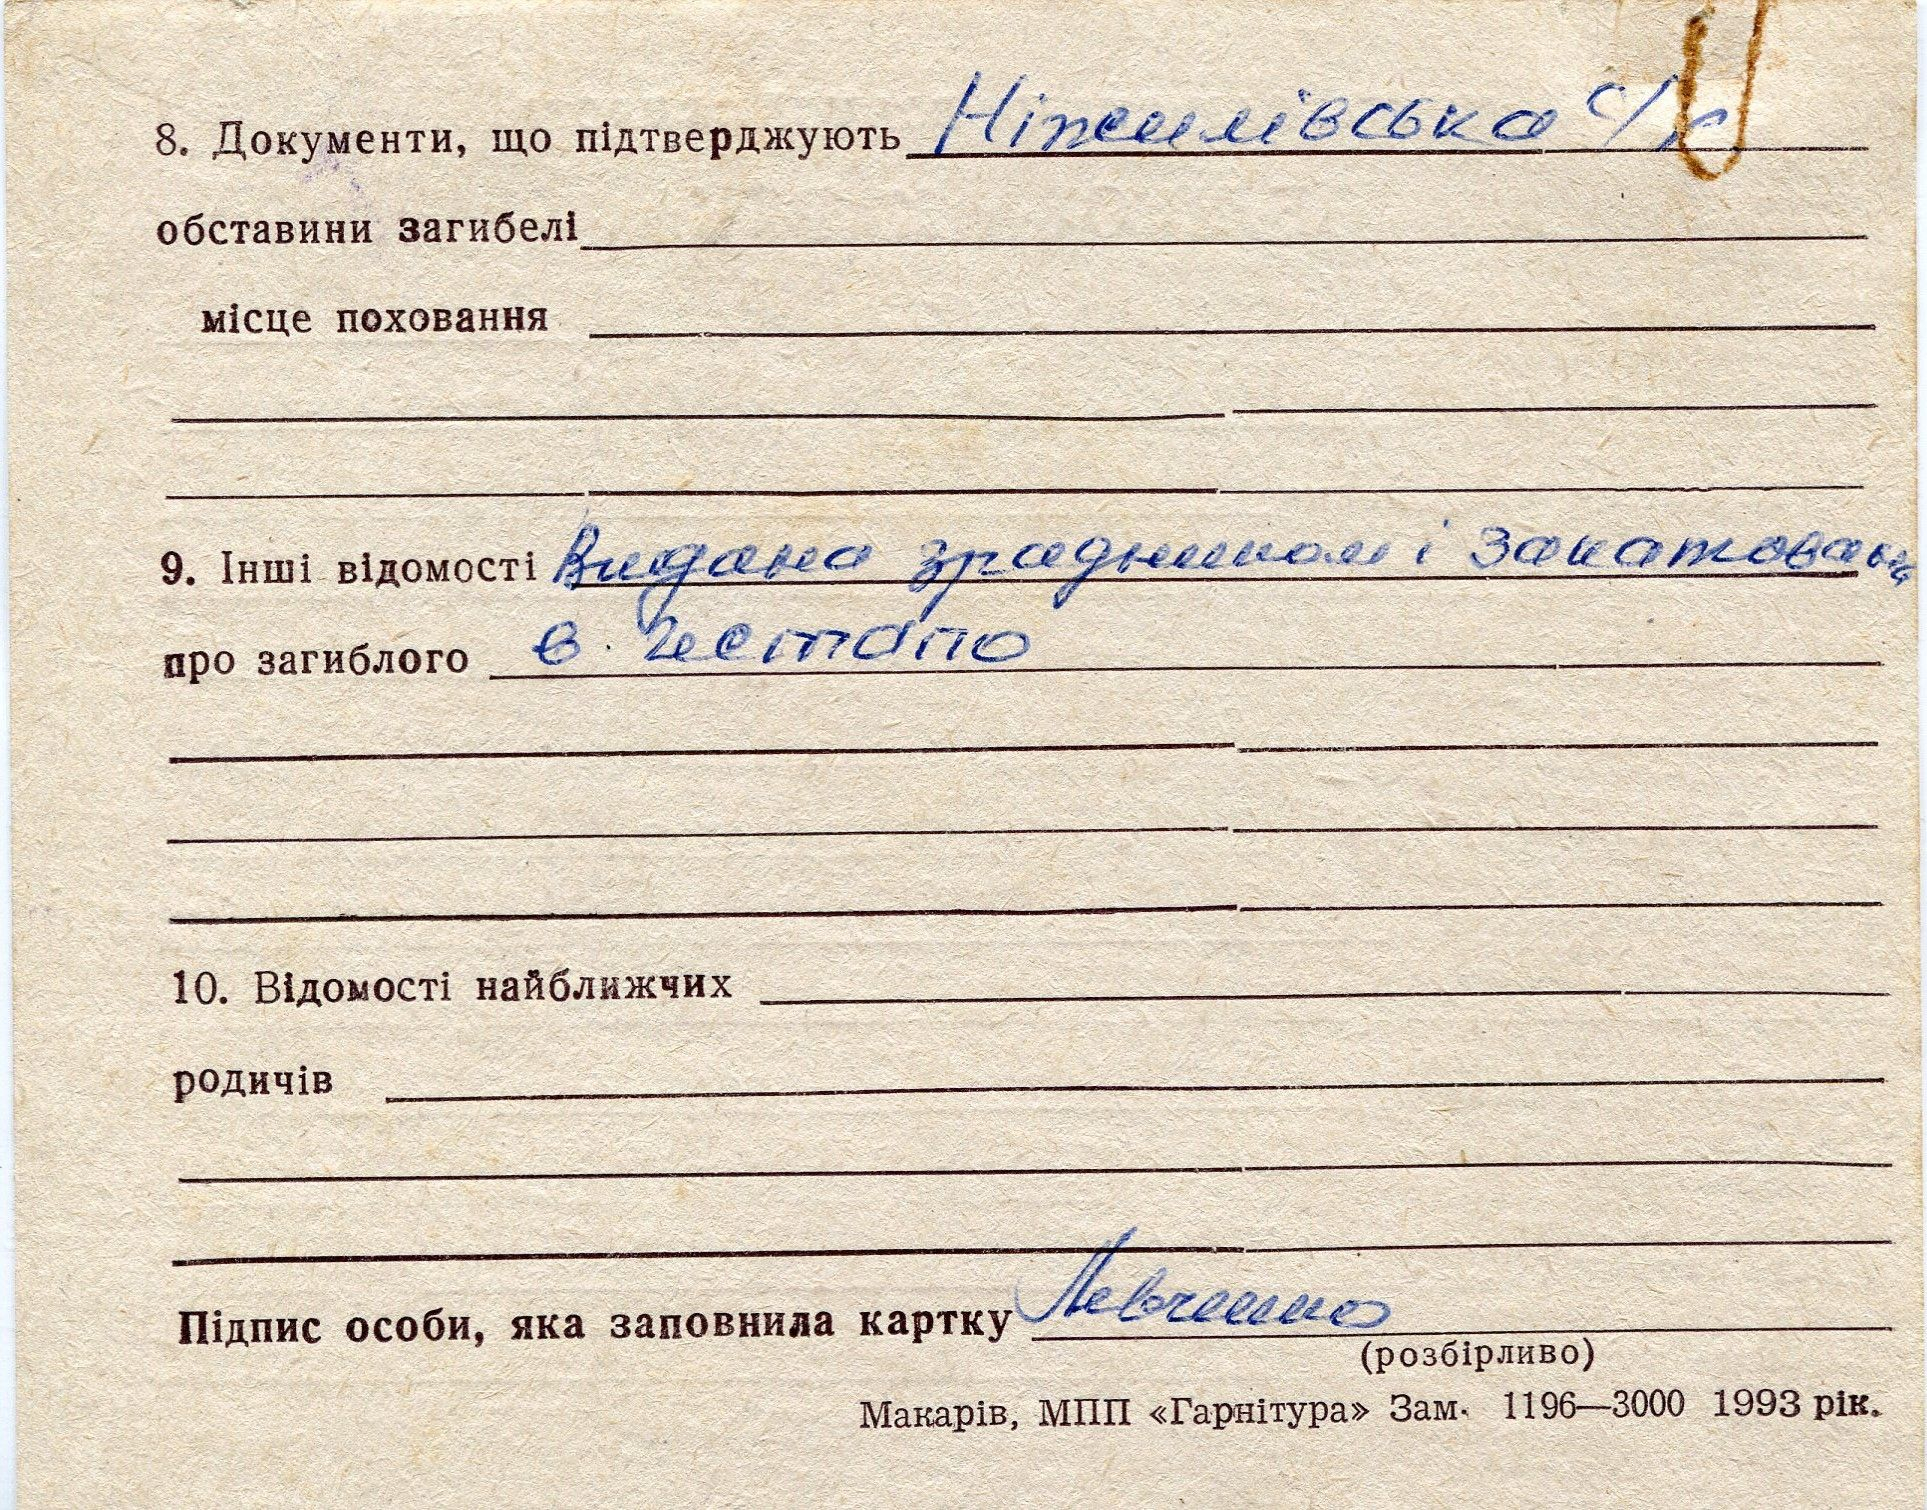 8. Документи, що підтверджують Ніжилівська с/р
обставини загибелі
місце поховання
9. Інші відомості Видана зрадником і закатована
про загиблого в гестапо
10. Відомості найближчих
родичів
Підпис особи, яка заповнила картку Левченко
(розбірливо)
Макарів, МПП «Гарнітура» Зам. 1196—3000 1993 рік.